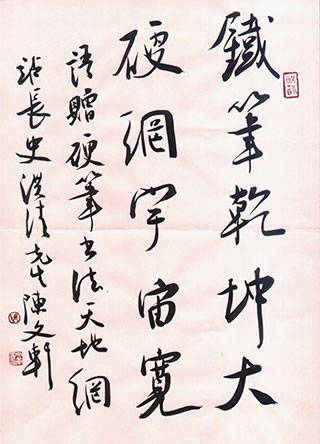 鐵筆乾坤大
硬網宇宙寬
語贈硬筆书法天地網
站長史洪清先生陳文軒